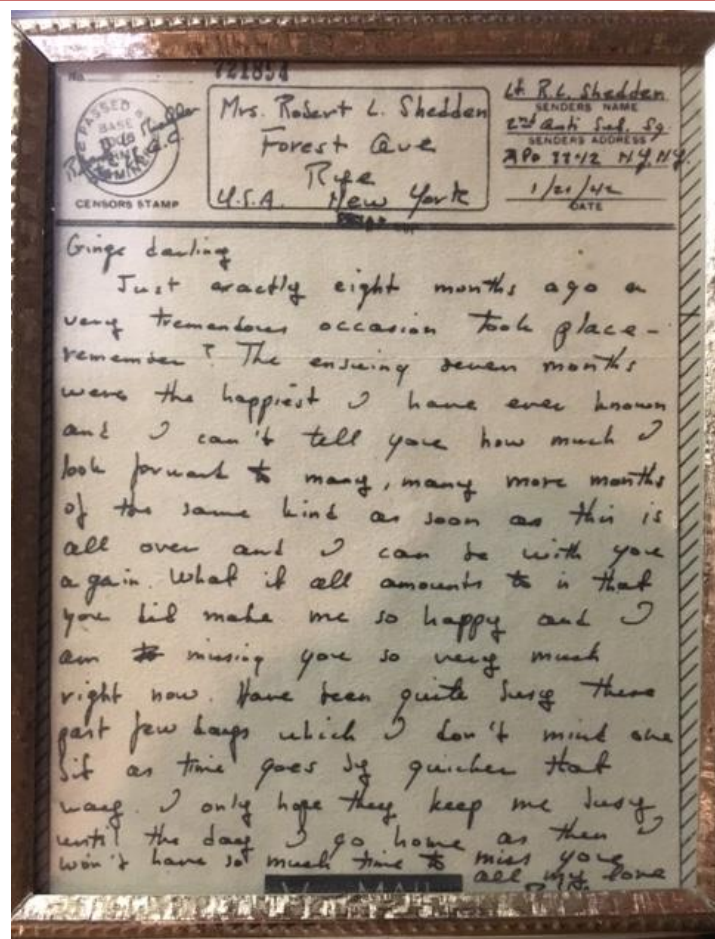 No.
721854
PASSED BY
BASE
CENSORS STAMP
Mrs. Robert L. Shedden
Forest Ave
Rye
U.S.A. New York
Lt. R.L. Shedden
SENDERS NAME
2nd Anti Sub. Sq.
SENDERS ADDRESS
APO N.Y. N.Y.
DATE
Ginge darling
Just exactly eight months ago a
very tremendous occasion took place -
remember? The ensuing seven months
were the happiest I have ever known
and I can't tell you how much I
look forward to many, many more months
of the same kind as soon as this is
all over and I can be with you
again. What it all amounts to is that
you did make me so happy and I
am missing you so very much
right now. Have been quite busy these
past few days which I don't mind one
bit as time goes by quicker that
way. I only hope they keep me busy
until the day I go home as then I
won't have so much time to miss you
all my love
V-MAIL